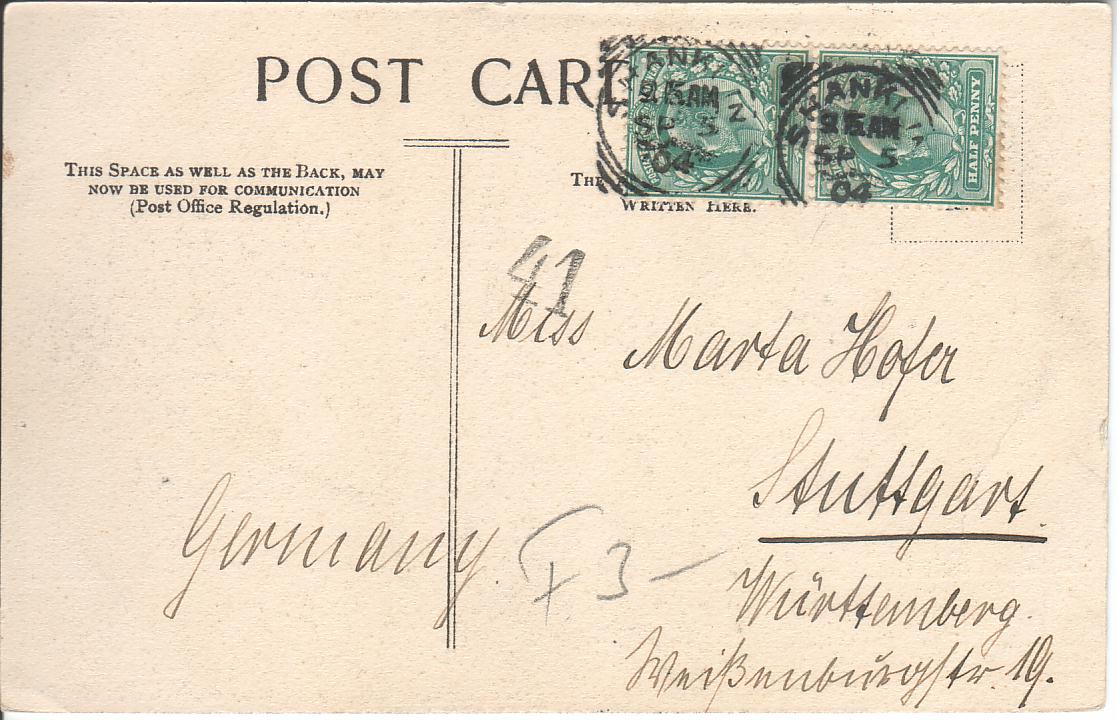 POST CART
THIS SPACE AS WELL AS THE BACK, MAY
NOW BE USED FOR COMMUNICATION
(Post Office Regulation.)
THE
WRITTEN HERE.
9.15 AM
SP 5
04
9.15 AM
SP 5
04
HALF PENNY
41
Miss Marta Hofer
Stuttgart.
Germany.
£3-
Württemberg.
Weißenburgstr. 19.